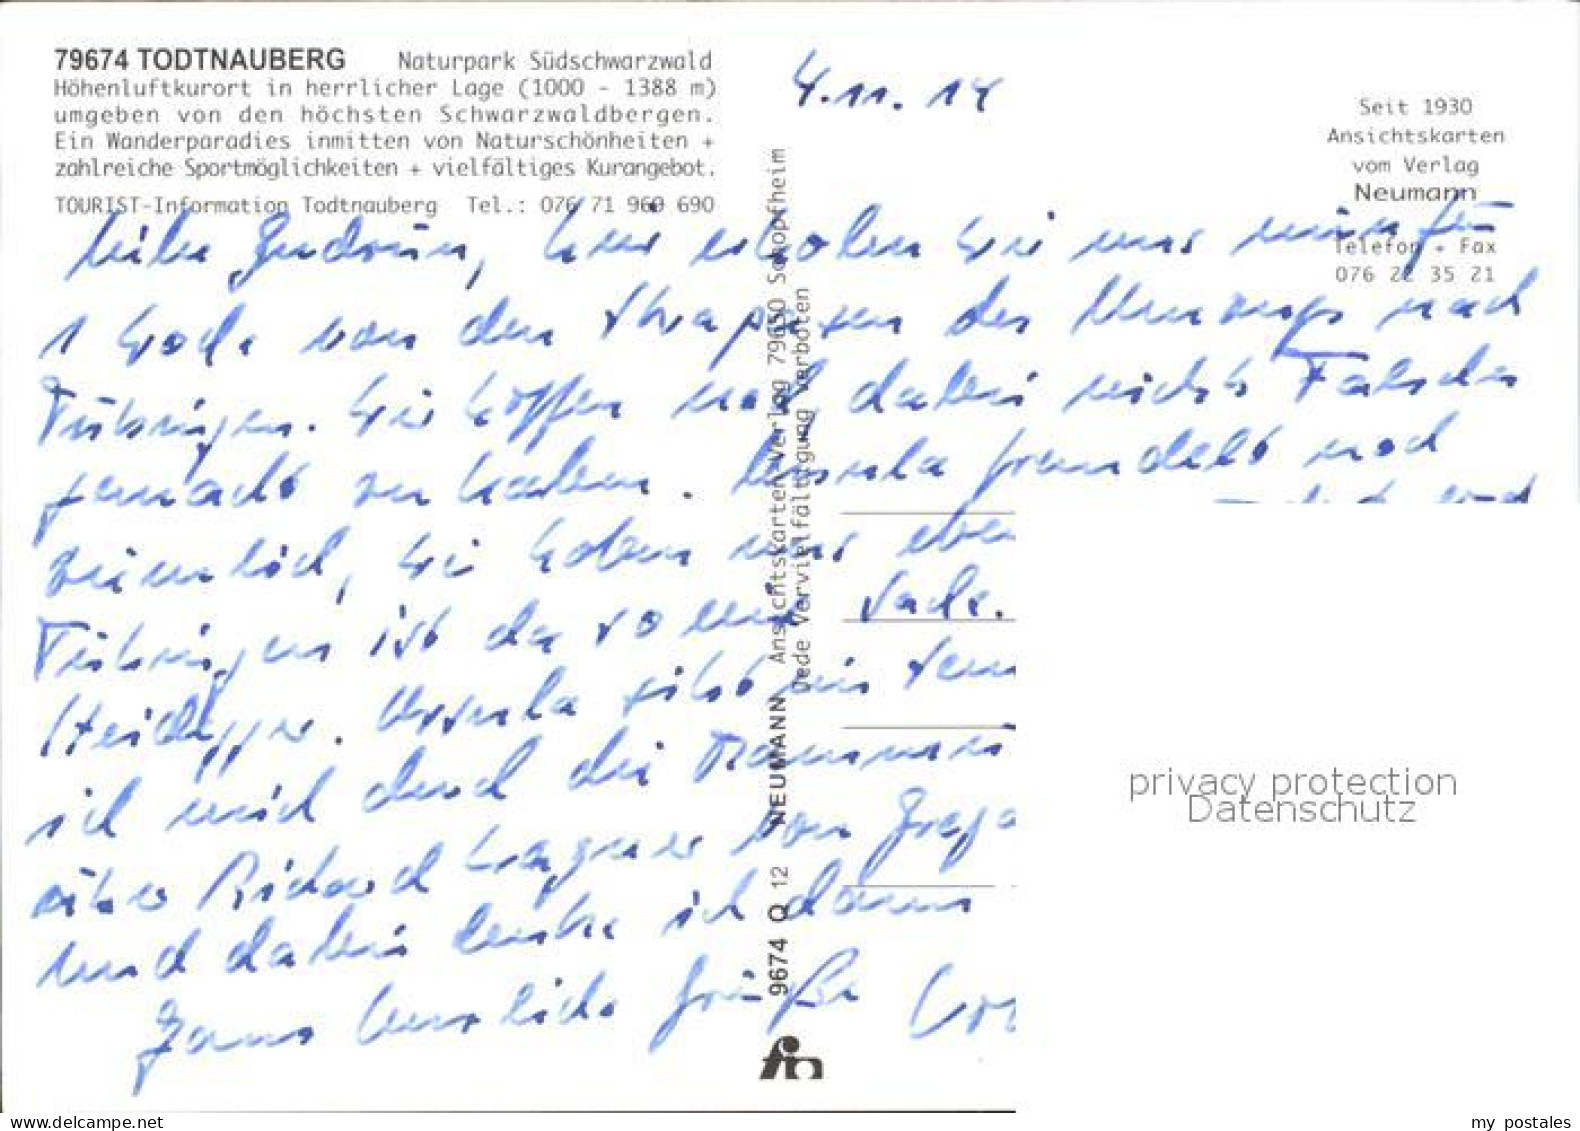 79674 TODTNAUBERG Naturpark Südschwarzwald
Höhenluftkurort in herrlicher Lage (1000 - 1388 m)
umgeben von den höchsten Schwarzwaldbergen.
Ein Wanderparadies inmitten von Naturschönheiten +
zahlreiche Sportmöglichkeiten + vielfältiges Kurangebot.
TOURIST-Information Todtnauberg Tel.: 076 71 969 690
4.11.14
Seit 1930
Ansichtskarten
vom Verlag
Neumann
Telefon + Fax
076 22 35 21
Liebe Gudrun, hier erholen wir uns
1 Woche von den Strapazen des Umzugs nach
Tübingen. Wir hoffen und dabei nichts Falsches
gemacht zu haben. Ursula fremdelt noch
ziemlich, wir haben uns eben
Tübingen ist da so eine Sache.
Heidegger. Ursula sitzt im
ich mich durch die
über Richard Wagner von Grego
Und dabei denke ich dann
Ganz herzliche Grüße
9674 Q 12 NEUMANN Ansichtskarten Verlag 79650 Schopfheim
Jede Vervielfältigung verboten
fn
privacy protection
Datenschutz
delcampe.net
my_postales